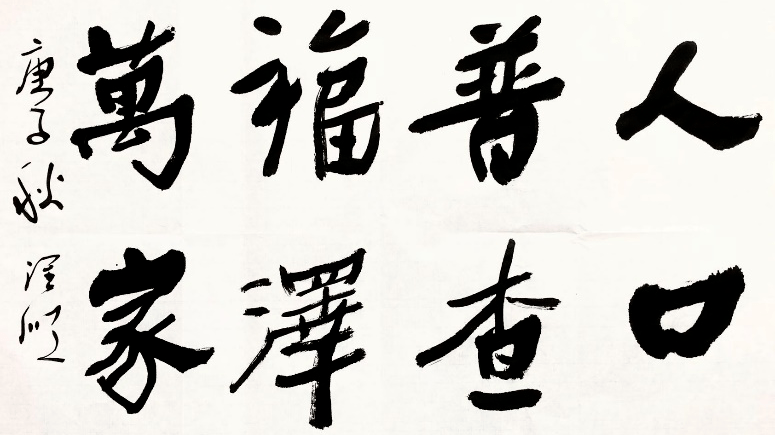 人口
普查
福澤
萬家
庚子秋